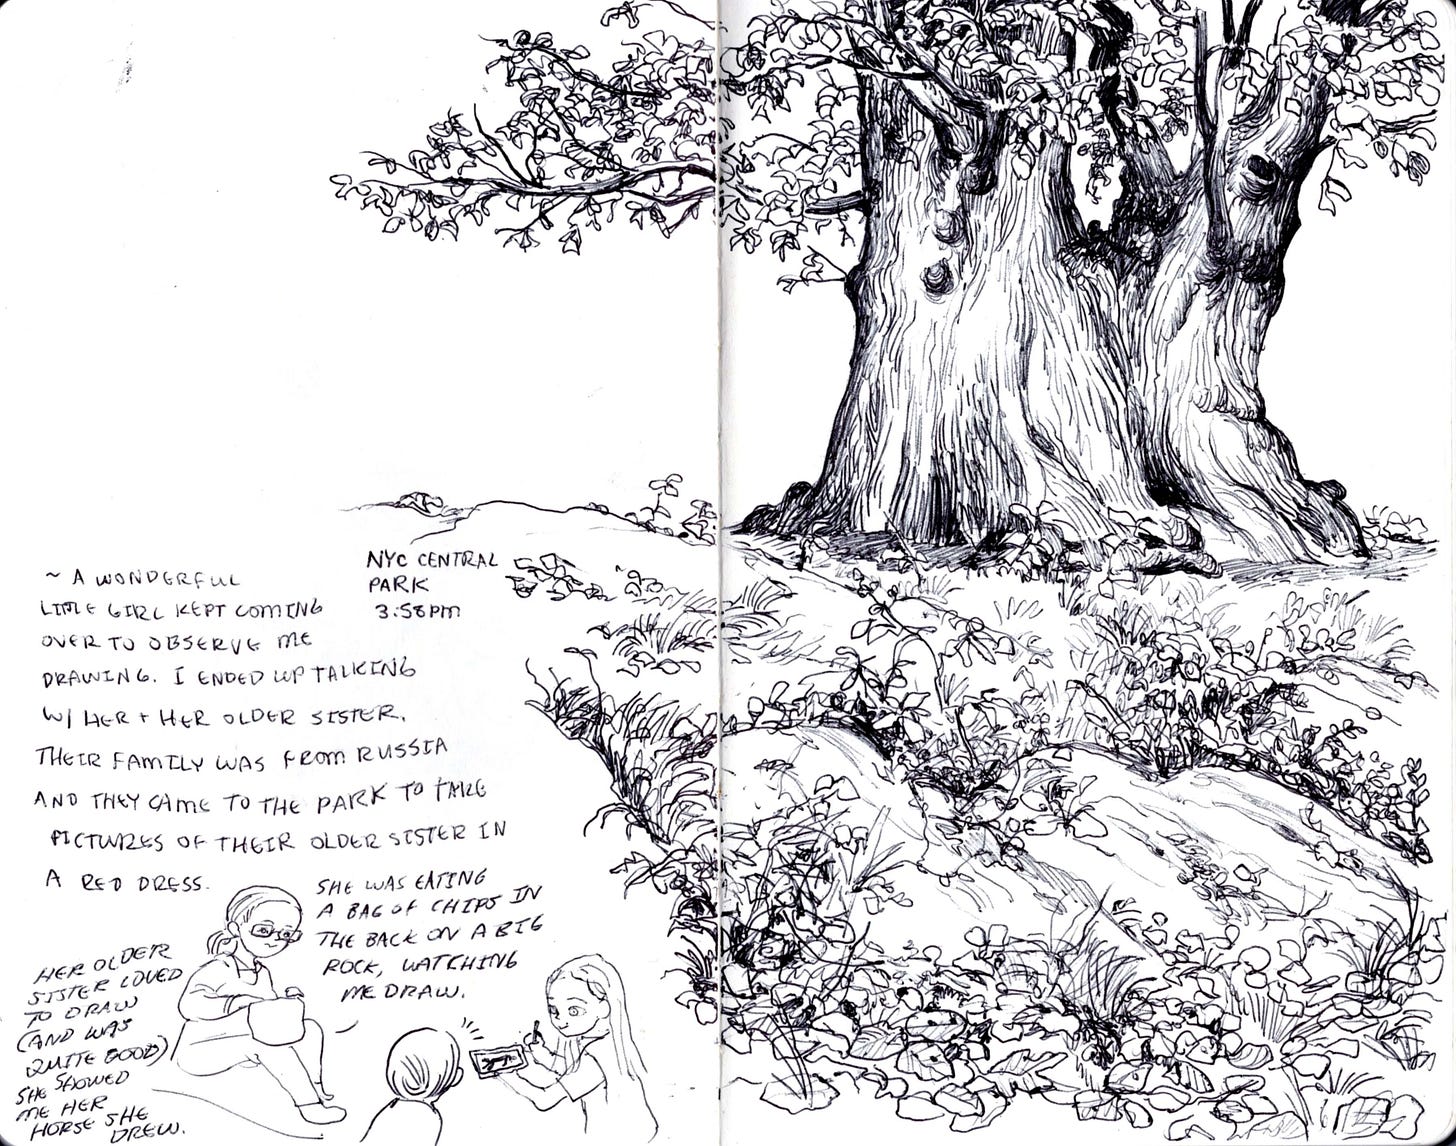 ~ A WONDERFUL
LITTLE GIRL KEPT COMING
OVER TO OBSERVE ME
DRAWING. I ENDED UP TALKING
W/ HER + HER OLDER SISTER.
THEIR FAMILY WAS FROM RUSSIA
AND THEY CAME TO THE PARK TO TAKE
PICTURES OF THEIR OLDER SISTER IN
A RED DRESS.
NYC CENTRAL
PARK
3:58PM
SHE WAS EATING
A BAG OF CHIPS IN
THE BACK ON A BIG
ROCK, WATCHING
ME DRAW.
HER OLDER
SISTER LOVED
TO DRAW
(AND WAS
QUITE GOOD)
SHE SHOWED
ME HER
HORSE SHE
DREW.